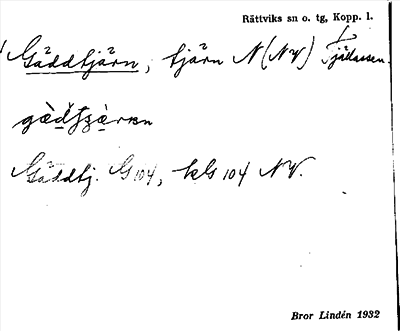 Rättviks sn o. tg, Kopp. l.
Gäddtjärn, tjärn N (NV) Fjällassen.
Gäddtj. G 104, kls 104 NV.
Bror Lindén 1932